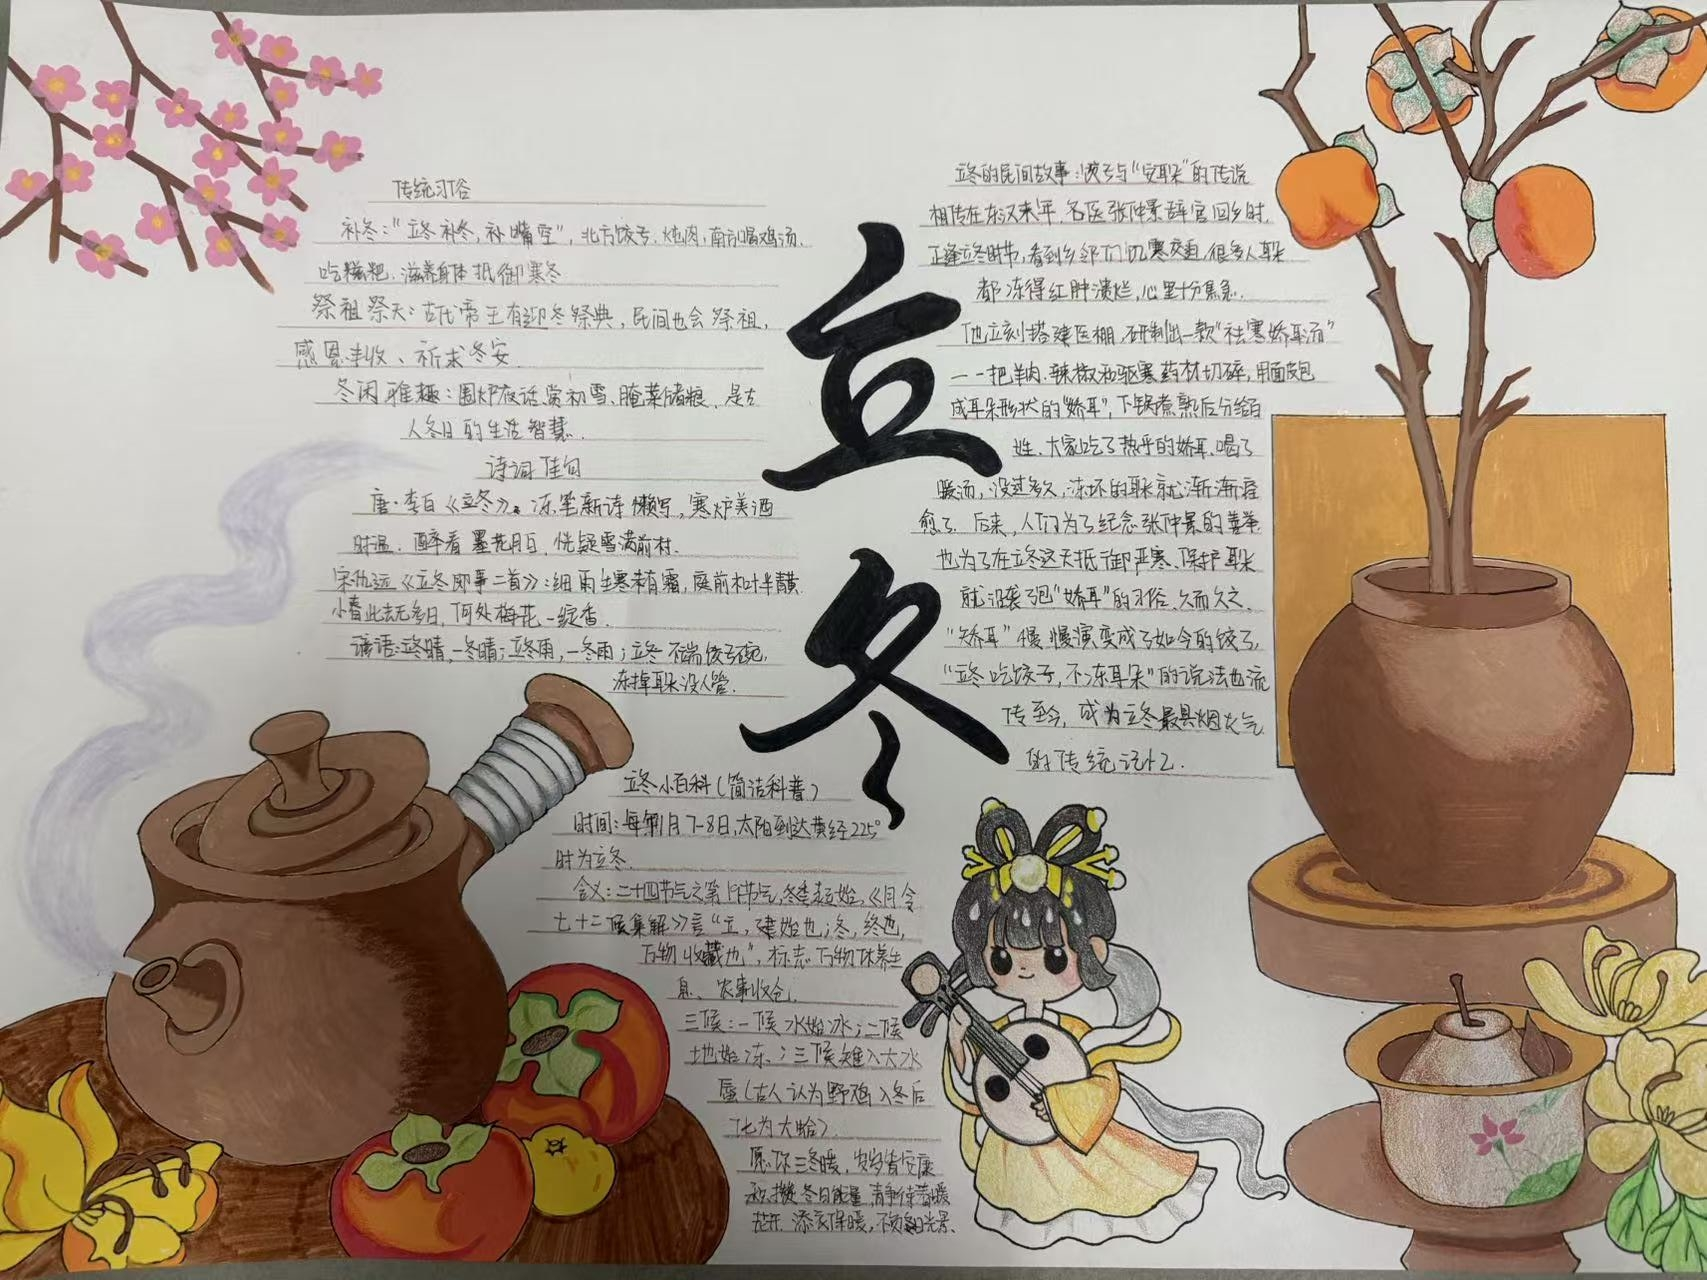 传统习俗
补冬：“立冬补冬，补嘴空”，北方饺子、炖肉，南方喝鸡汤、
吃糍粑，滋养身体抵御寒冬
祭祖祭天：古代帝王有迎冬祭典，民间也会祭祖，
感恩丰收、祈求冬安
冬闲雅趣：围炉夜话、赏初雪、腌菜储粮，是古
人冬日的生活智慧.
诗词佳句
唐·李白《立冬》：冻笔新诗懒写，寒炉美酒
时温．醉看墨花月白，恍疑雪满前村．
宋·仇远《立冬即事二首》：细雨生寒未有霜，庭前木叶半青黄．
小春此去无多日，何处梅花一绽香．
谚语：立冬晴，一冬晴；立冬雨，一冬雨；立冬不端饺子碗，
冻掉耳朵没人管．
立冬
立冬的民间故事：饺子与“安耳朵”的传说
相传在东汉末年，名医张仲景辞官回乡时，
正逢立冬时节，看到乡邻们饥寒交迫，很多人耳朵
都冻得红肿溃烂，心里十分焦急．
他立刻搭建医棚，研制出一款“祛寒娇耳汤”
——把羊肉、辣椒和驱寒药材切碎，用面皮包
成耳朵形状的“娇耳”，下锅煮熟后分给百
姓．大家吃了热乎的娇耳，喝了
暖汤，没过多久，冻坏的耳朵就渐渐痊
愈了．后来，人们为了纪念张仲景的善举
也为了在立冬这天抵御严寒、保护耳朵
就沿袭了包“娇耳”的习俗．久而久之，
“娇耳”慢慢演变成了如今的饺子，
“立冬吃饺子，不冻耳朵”的说法也流
传至今，成为立冬最具烟火气
的传统记忆．
立冬小百科（简洁科普）
时间：每年11月7-8日，太阳到达黄经225°
时为立冬．
含义：二十四节气之第19节气，冬季起始，《月令
七十二候集解》言“立，建始也；冬，终也，
万物收藏也”，标志万物休养生
息、农事收仓．
三候：一候水始冰；二候
地始冻；三候雉入大水
为蜃（古人认为野鸡入冬后
化为大蛤）．
愿你三冬暖，岁岁皆安康
冬日能量，静待春暖
花开．添衣保暖，不负光景．